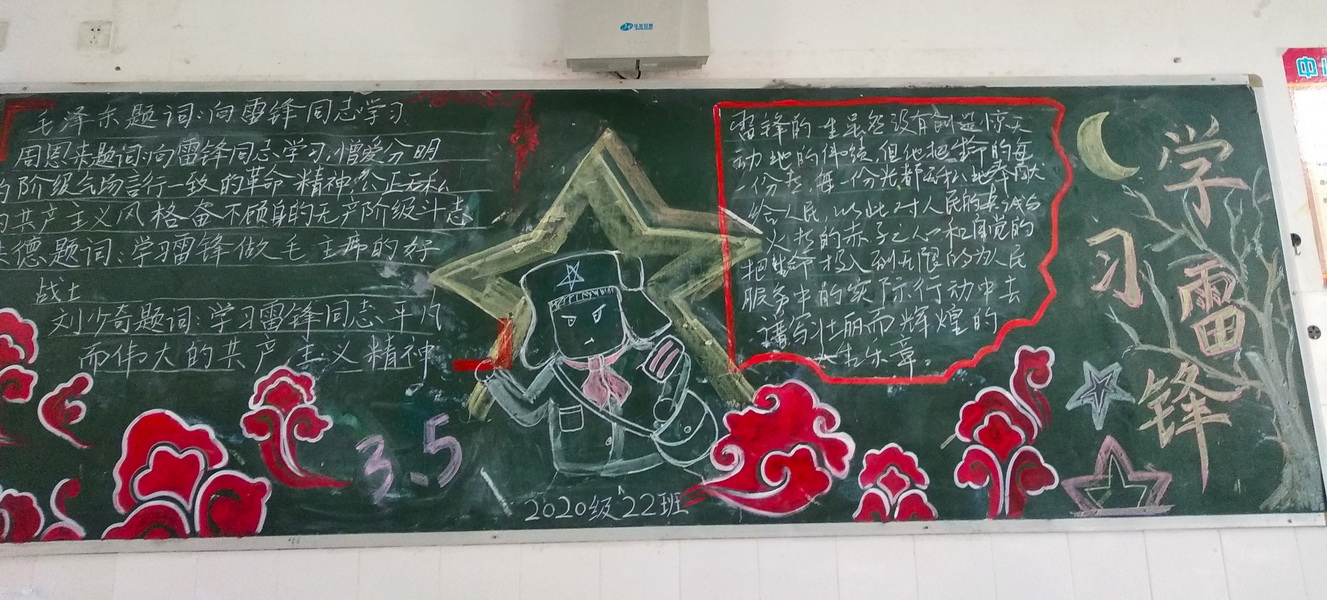 毛泽东题词:向雷锋同志学习
周恩来题词:向雷锋同志学习,憎爱分明
的阶级立场言行一致的革命精神公正无私
的共产主义风格奋不顾身的无产阶级斗志
德题词:学习雷锋做毛主席的好
战士
刘少奇题词:学习雷锋同志平凡
而伟大的共产主义精神
3.5
2020级22班
雷锋的一生虽然没有创造惊天
动地的伟绩,但他把生命的每
一份光都无私地奉献
给人民,以此对人民的
的赤子之心和自觉的
把生命投入到无限的为人民
服务中的实际行动中去
谱写壮丽而辉煌的
生乐章。
学习雷锋
中